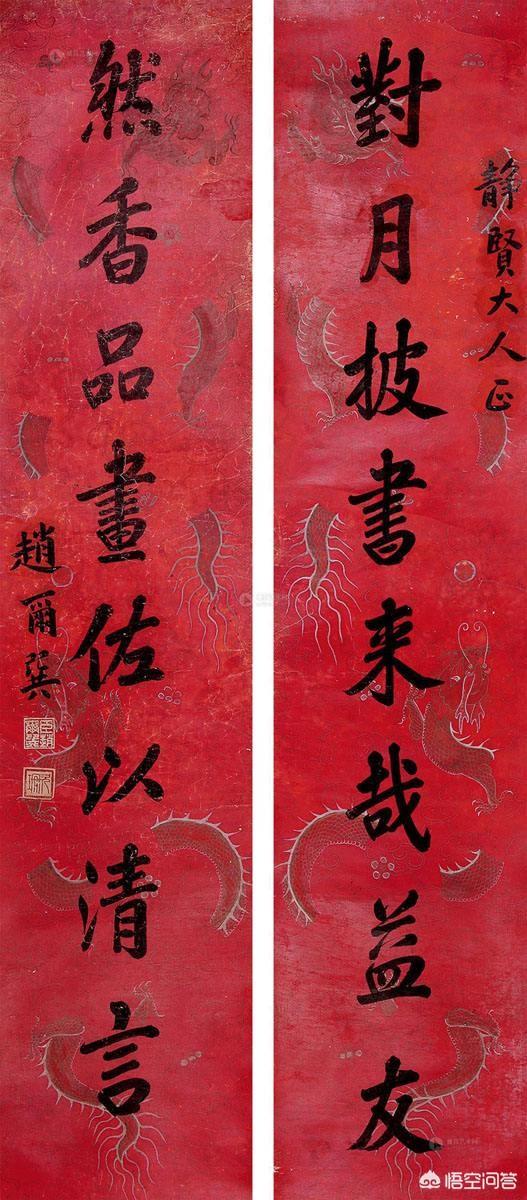 靜賢大人正
對月披書来哉益友
然香品畫佐以清言
趙爾巽
臣趙爾巽
悟空问答